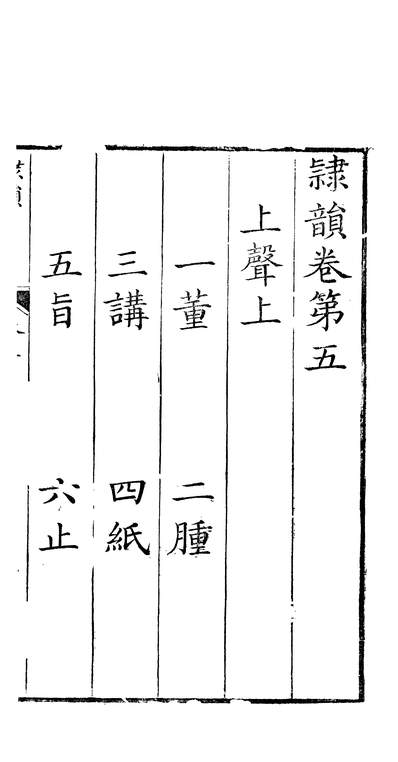 隸韻卷第五
上聲上
一董　二腫
三講　四紙
五旨　六止